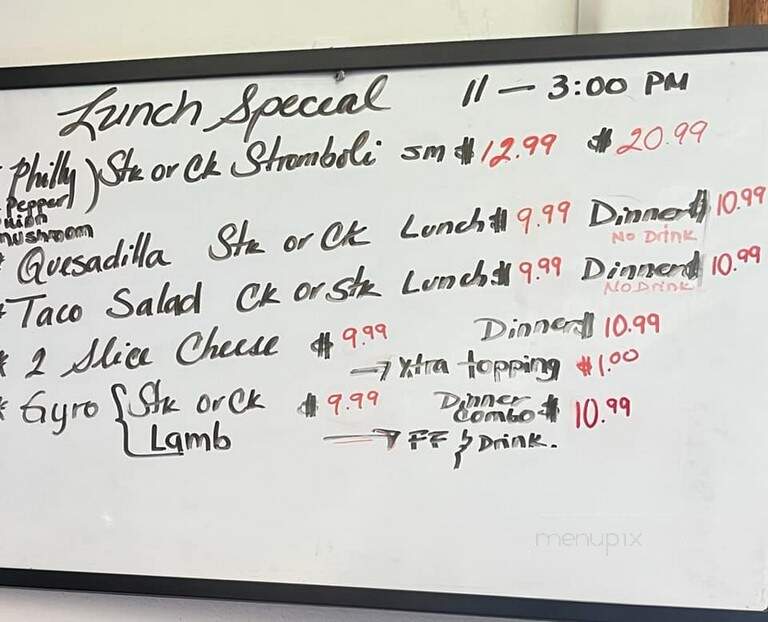 Lunch Special 11 — 3:00 PM
Philly) Stk or Ck Stromboli sm $12.99 $20.99
Pepper
mushroom
* Quesadilla Stk or Ck Lunch $9.99 Dinner $10.99
No Drink
* Taco Salad Ck or Stk Lunch $9.99 Dinner $10.99
No Drink
* 2 Slice Cheese $9.99 Dinner $10.99
→ Xtra topping $1.00
* Gyro { Stk or Ck $9.99 Dinner Combo $10.99
Lamb → FF & Drink.
menupix